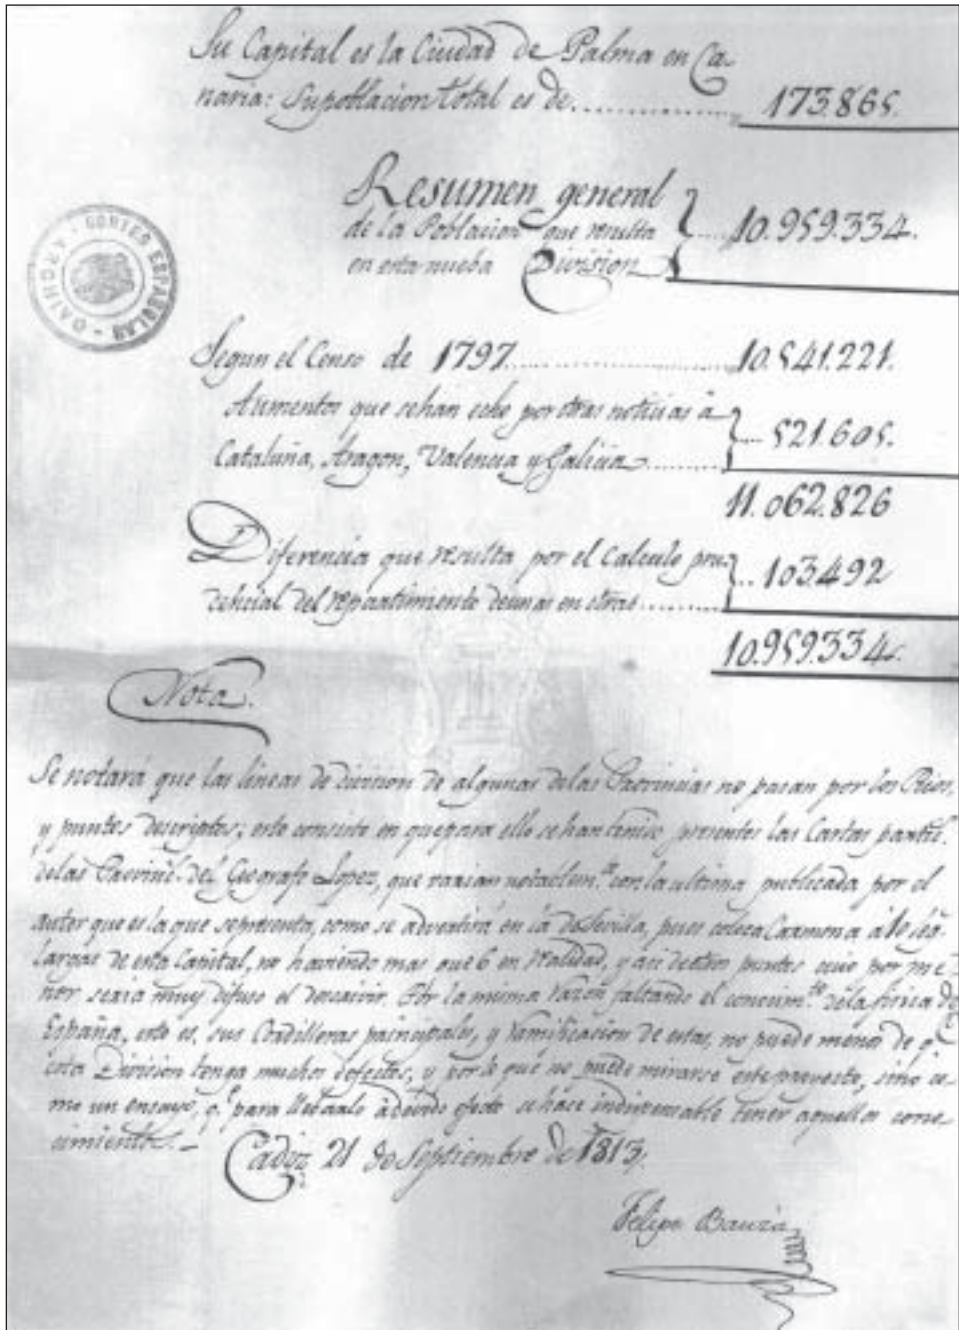 Su Capital es la Ciudad de Palma en Ca-
naria: Su poblacion total es de.............. 173.865.
Resumen general
de la Poblacion que resulta ..... 10.959.334.
en esta nueba Division
CORTES ESPAÑOLAS
Segun el Censo de 1797.................. 10.541.221.
Aumentos que sehan echo por otras noticias à
Cataluña, Aragon, Valencia y Galicia........ 521.605.
11.062.826
Diferencia que resulta por el Calculo pru-
dencial del repartimiento de unas en otras........ 103.492
10.959.334.
Nota.
Se notará que las lineas de division de algunas de las Provincias no pasan por los Rios,
y puntos descriptos; esto consiste en que para ello sehan tenido presentes las Cartas
delas del Geografo Lopez, que varian con la ultima publicada por el
autor que es la que representa, como se advertirá en la de Sevilla, pues coloca Carmona à 10 leg.
largas de esta Capital, no haviendo mas que 6 en realidad, y asi de otros puntos que por me-
nor seria muy difuso el descrivir. Por la misma razon faltando el dela fisica de
España, esto es, sus Cordilleras principales, y ramificacion de estas, no puede menos de q.e
esta Division tenga muchos defectos, y por lo que no puede mirarse este proyecto, sino co-
mo un ensayo, q.e para llebarlo à devido efecto se hace indispensable tener aquellos cono-
cimientos.-
Cadiz 21 de Septiembre de 1813.
Felipe Bauzá